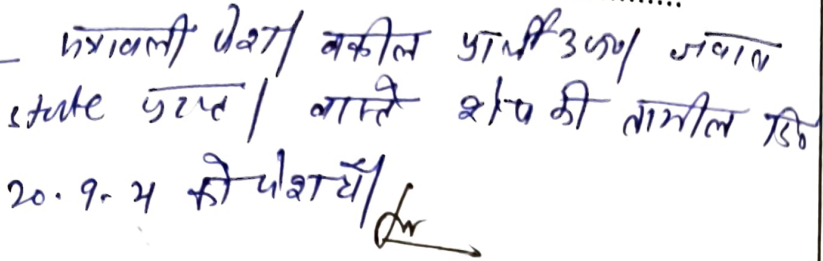 पत्रावली पेश। वकील प्रार्थी उप०। जवाब
state प्राप्त। वास्ते शेष की तामील दि०
20.9.24 को पेश हो।